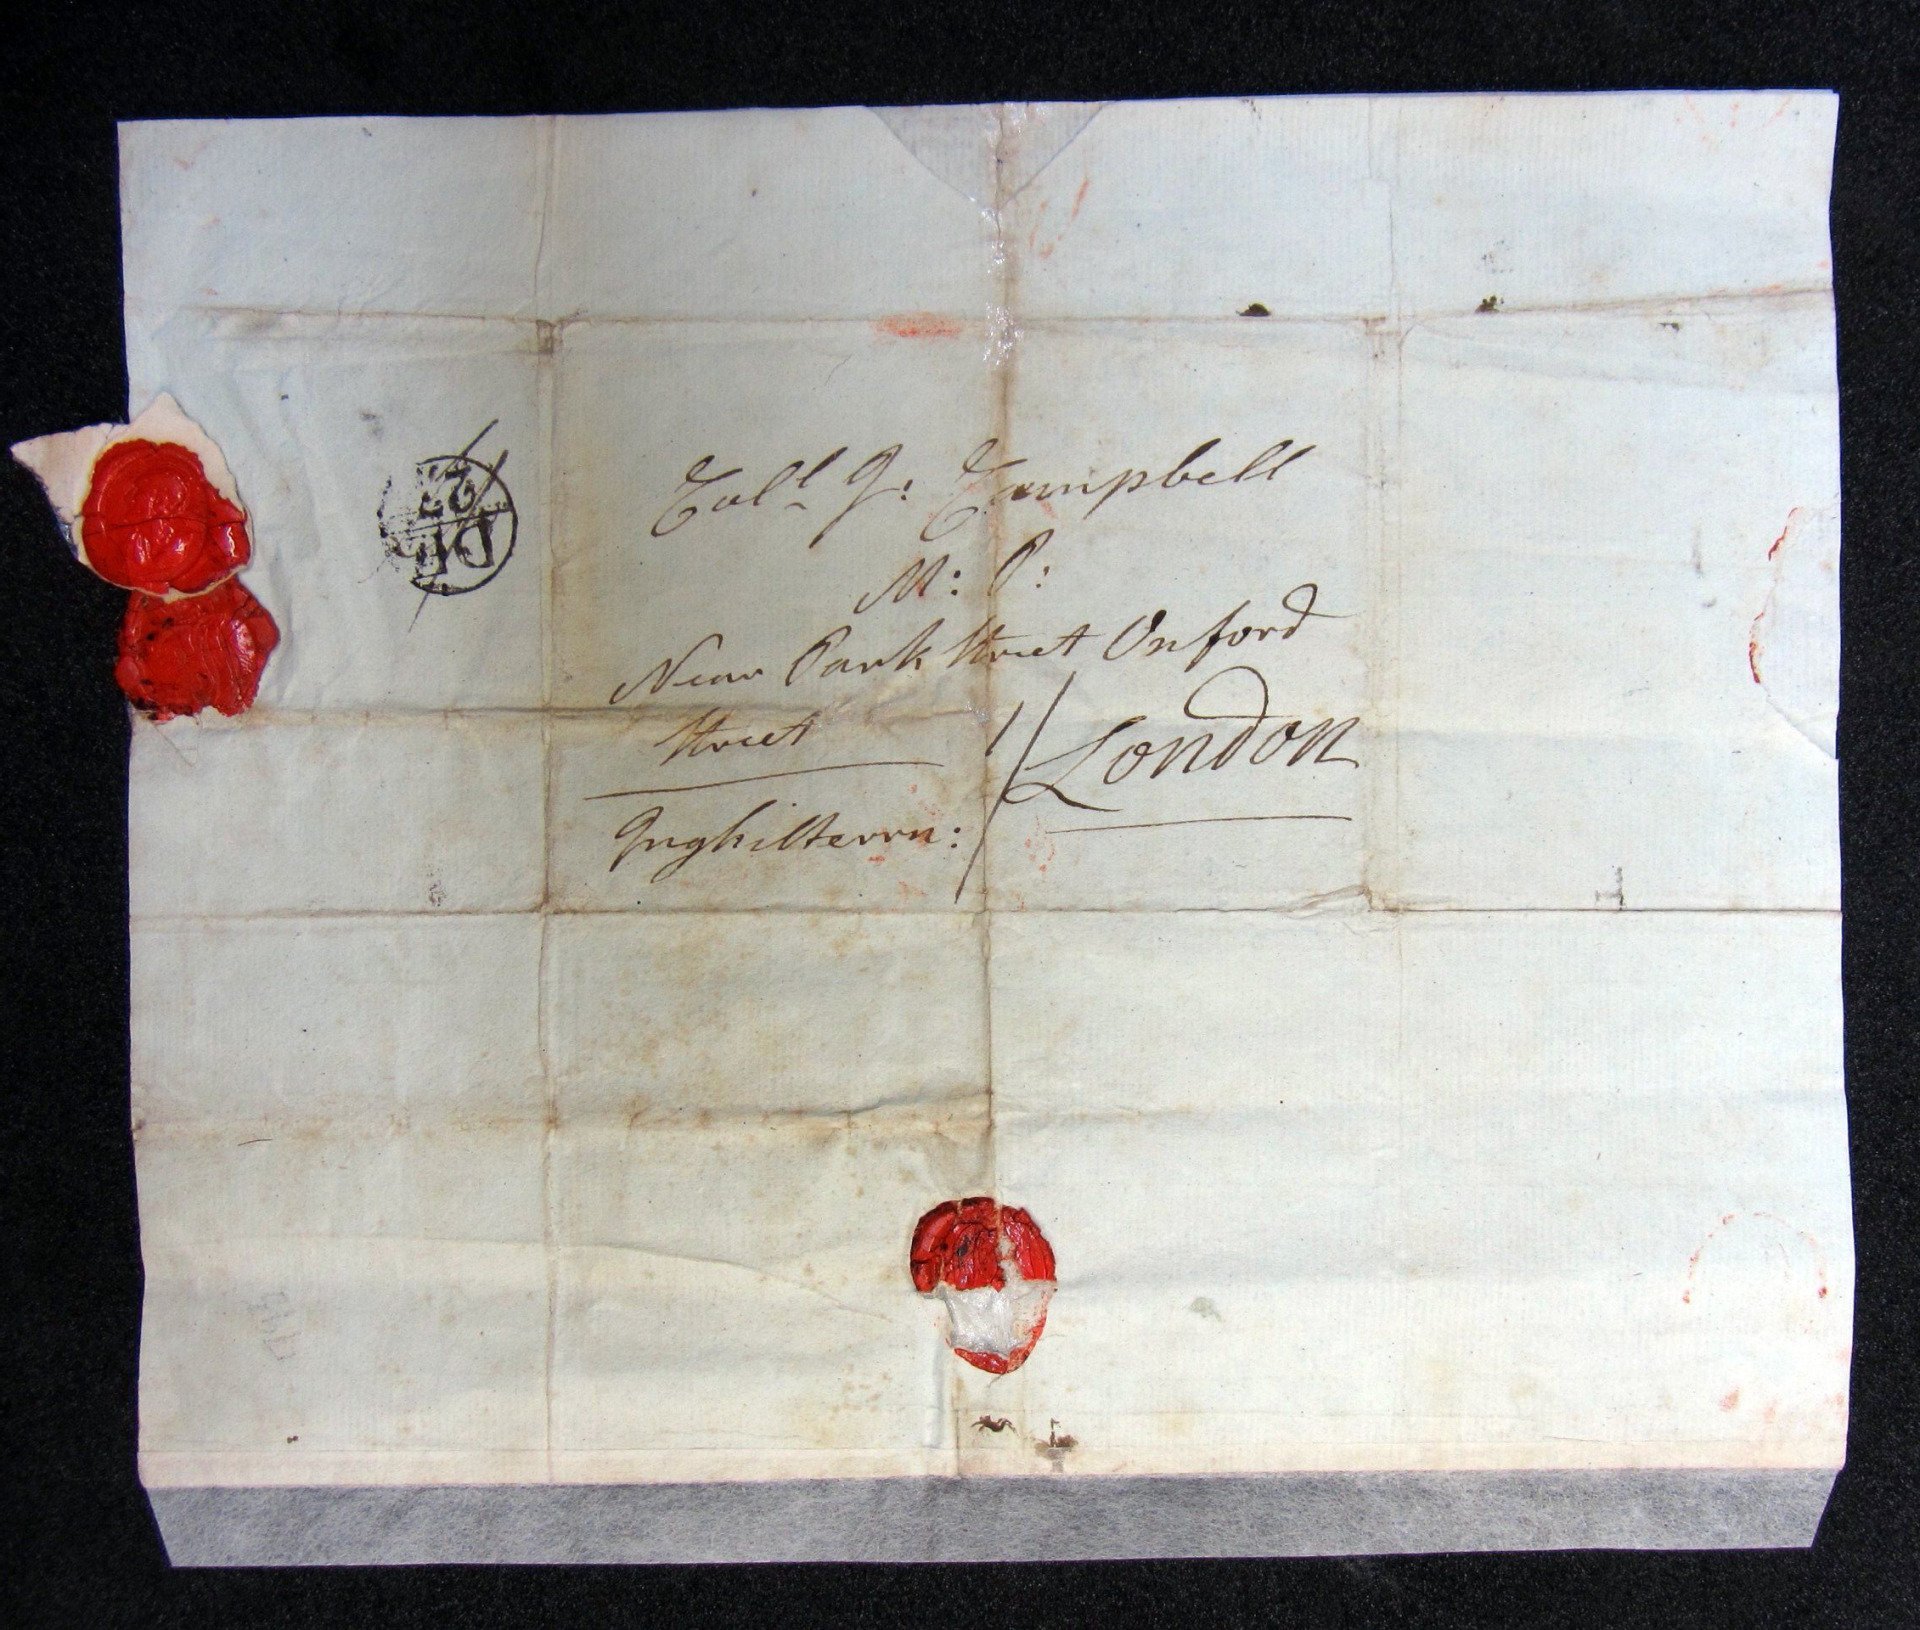 Coll. J: Campbell
M: P:
Near Park Street Oxford
Street
1/
London
Inghilterra:
DE
27